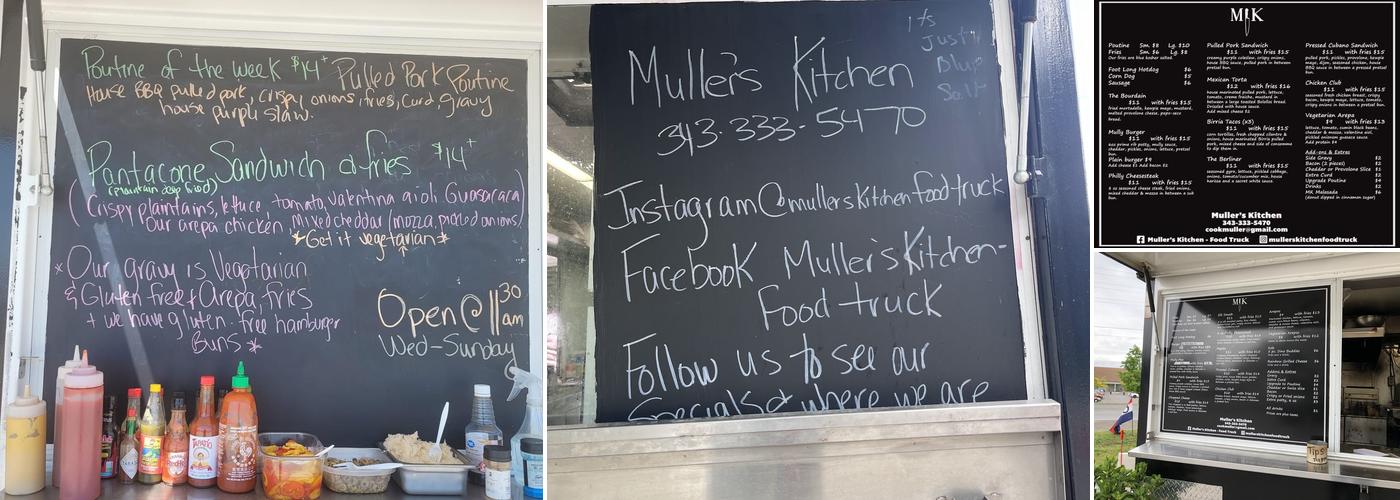 Poutine of the week $14+ Pulled Pork Poutine
House BBQ pulled pork, crispy onions, fries, curd, gravy
house purple slaw.
Pantacone Sandwich & fries $14+
Crispy plaintains, lettuce, tomato, valentina aioli Guasacara
Our arepa chicken, mixed cheddar/mozza, pickled onions)
*Get it vegetarian*
*Our gravy is Vegetarian
& Gluten free & Arepa, fries
+ we have gluten-free hamburger
Buns *
Open @ 11 30 am
Wed-Sunday
TAPATIO
its
Just
Blue
Salt
Muller's Kitchen
343-333-5470
Instagram @mullerskitchenfoodtruck
Facebook Muller's Kitchen-
Food truck
Follow us to see our
Specials & where we are
MK
Poutine Sm. $8 Lg. $10
Fries Sm. $6 Lg. $8
Our fries are blue kosher salted.
Foot Long Hotdog $6
Corn Dog $5
Sausage $6
The Bourdain
$11 with fries $15
fried mortadella, kewpie mayo, mustard,
melted provolone cheese, pepo-seco
bread.
Mully Burger
$11 with fries $15
6oz prime rib patty, mully sauce,
cheddar, pickles, onions, lettuce, pretzel
bun.
Plain burger $9
Add cheese $1 Add bacon $2
Philly Cheesesteak
$11 with fries $15
6 oz seasoned cheese steak, fried onions,
mixed cheddar & mozza in between a sub
bun.
Pulled Pork Sandwich
$11 with fries $15
creamy purple coleslaw, crispy onions,
house BBQ sauce, pulled pork in between
pretzel bun.
Mexican Torta
$12 with fries $16
house marinated pulled pork, lettuce,
tomato, creme fraiche, mustard in
between a large toasted Bolollos bread.
Drizzled with house sauce.
Add mixed cheese $2
Birria Tacos (x3)
$11 with fries $15
corn tortillas, fresh chopped cilantro &
onions, house marinated Birria pulled
pork, mixed cheese and side of consomme
to dip them in.
The Berliner
$11 with fries $15
seasoned gyro, lettuce, pickled cabbage,
onions, tomato/cucumber mix, house
harissa and a secret white sauce.
Pressed Cubano Sandwich
$11 with fries $15
pulled pork, pickles, provolone, kewpie
mayo, dijon, seasoned chicken, house
BBQ sauce in between a pressed pretzel
bun.
Chicken Club
$11 with fries $15
seasoned fresh chicken breast, crispy
bacon, kewpie mayo, lettuce, tomato,
crispy onion in between pretzel bun.
Vegetarian Arepa
$9 with fries $13
lettuce, tomato, cumin black beans,
cheddar & mozza, valentina aioli,
pickled onions guasaca sauce
Add protein $4
Add-ons & Extras
Side Gravy $2
Bacon (2 pieces) $2
Cheddar or Provolone Slice $1
Extra Curd $2
Upgrade Poutine $4
Drinks $2
MK Malasada $6
(donut dipped in cinnamon sugar)
Muller's Kitchen
343-333-5470
cookmuller@gmail.com
Muller's Kitchen - Food Truck mullerskitchenfoodtruck
MK
Muller's Kitchen
343-333-5470
Muller's Kitchen - Food Truck mullerskitchenfoodtruck
Tips